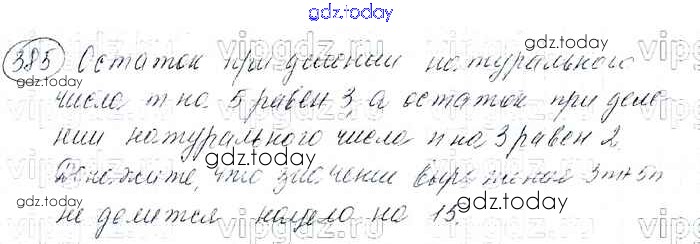 gdz.today
385 Остаток при делении натурального
числа m на 5 равен 3, а остаток при деле
нии натурального числа n на 3 равен 2.
Докажите, что значении выражения 3m+5n
не делится нацело на 15.
gdz.today
gdz.today
gdz.today
gdz.today
gdz.today
gdz.today